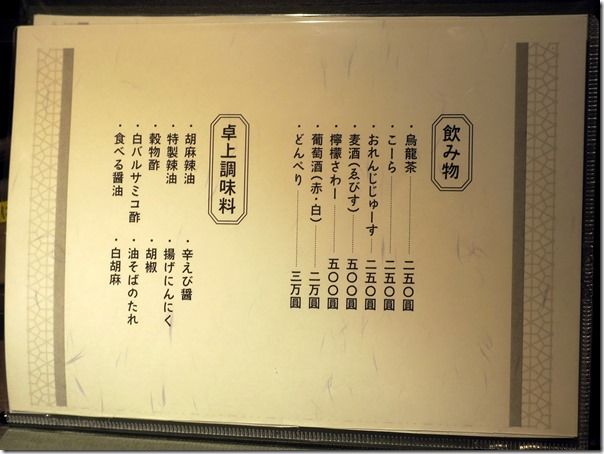 飲み物
・烏龍茶……二五〇圓
・こーら……二五〇圓
・おれんじじゅーす……二五〇圓
・麦酒(ゑびす)……五〇〇圓
・檸檬さわー……五〇〇圓
・葡萄酒(赤・白)……二万圓
・どんぺり……三万圓
卓上調味料
・胡麻辣油
・特製辣油
・穀物酢
・白バルサミコ酢
・食べる醤油
・辛えび醤
・揚げにんにく
・胡椒
・油そばのたれ
・白胡麻